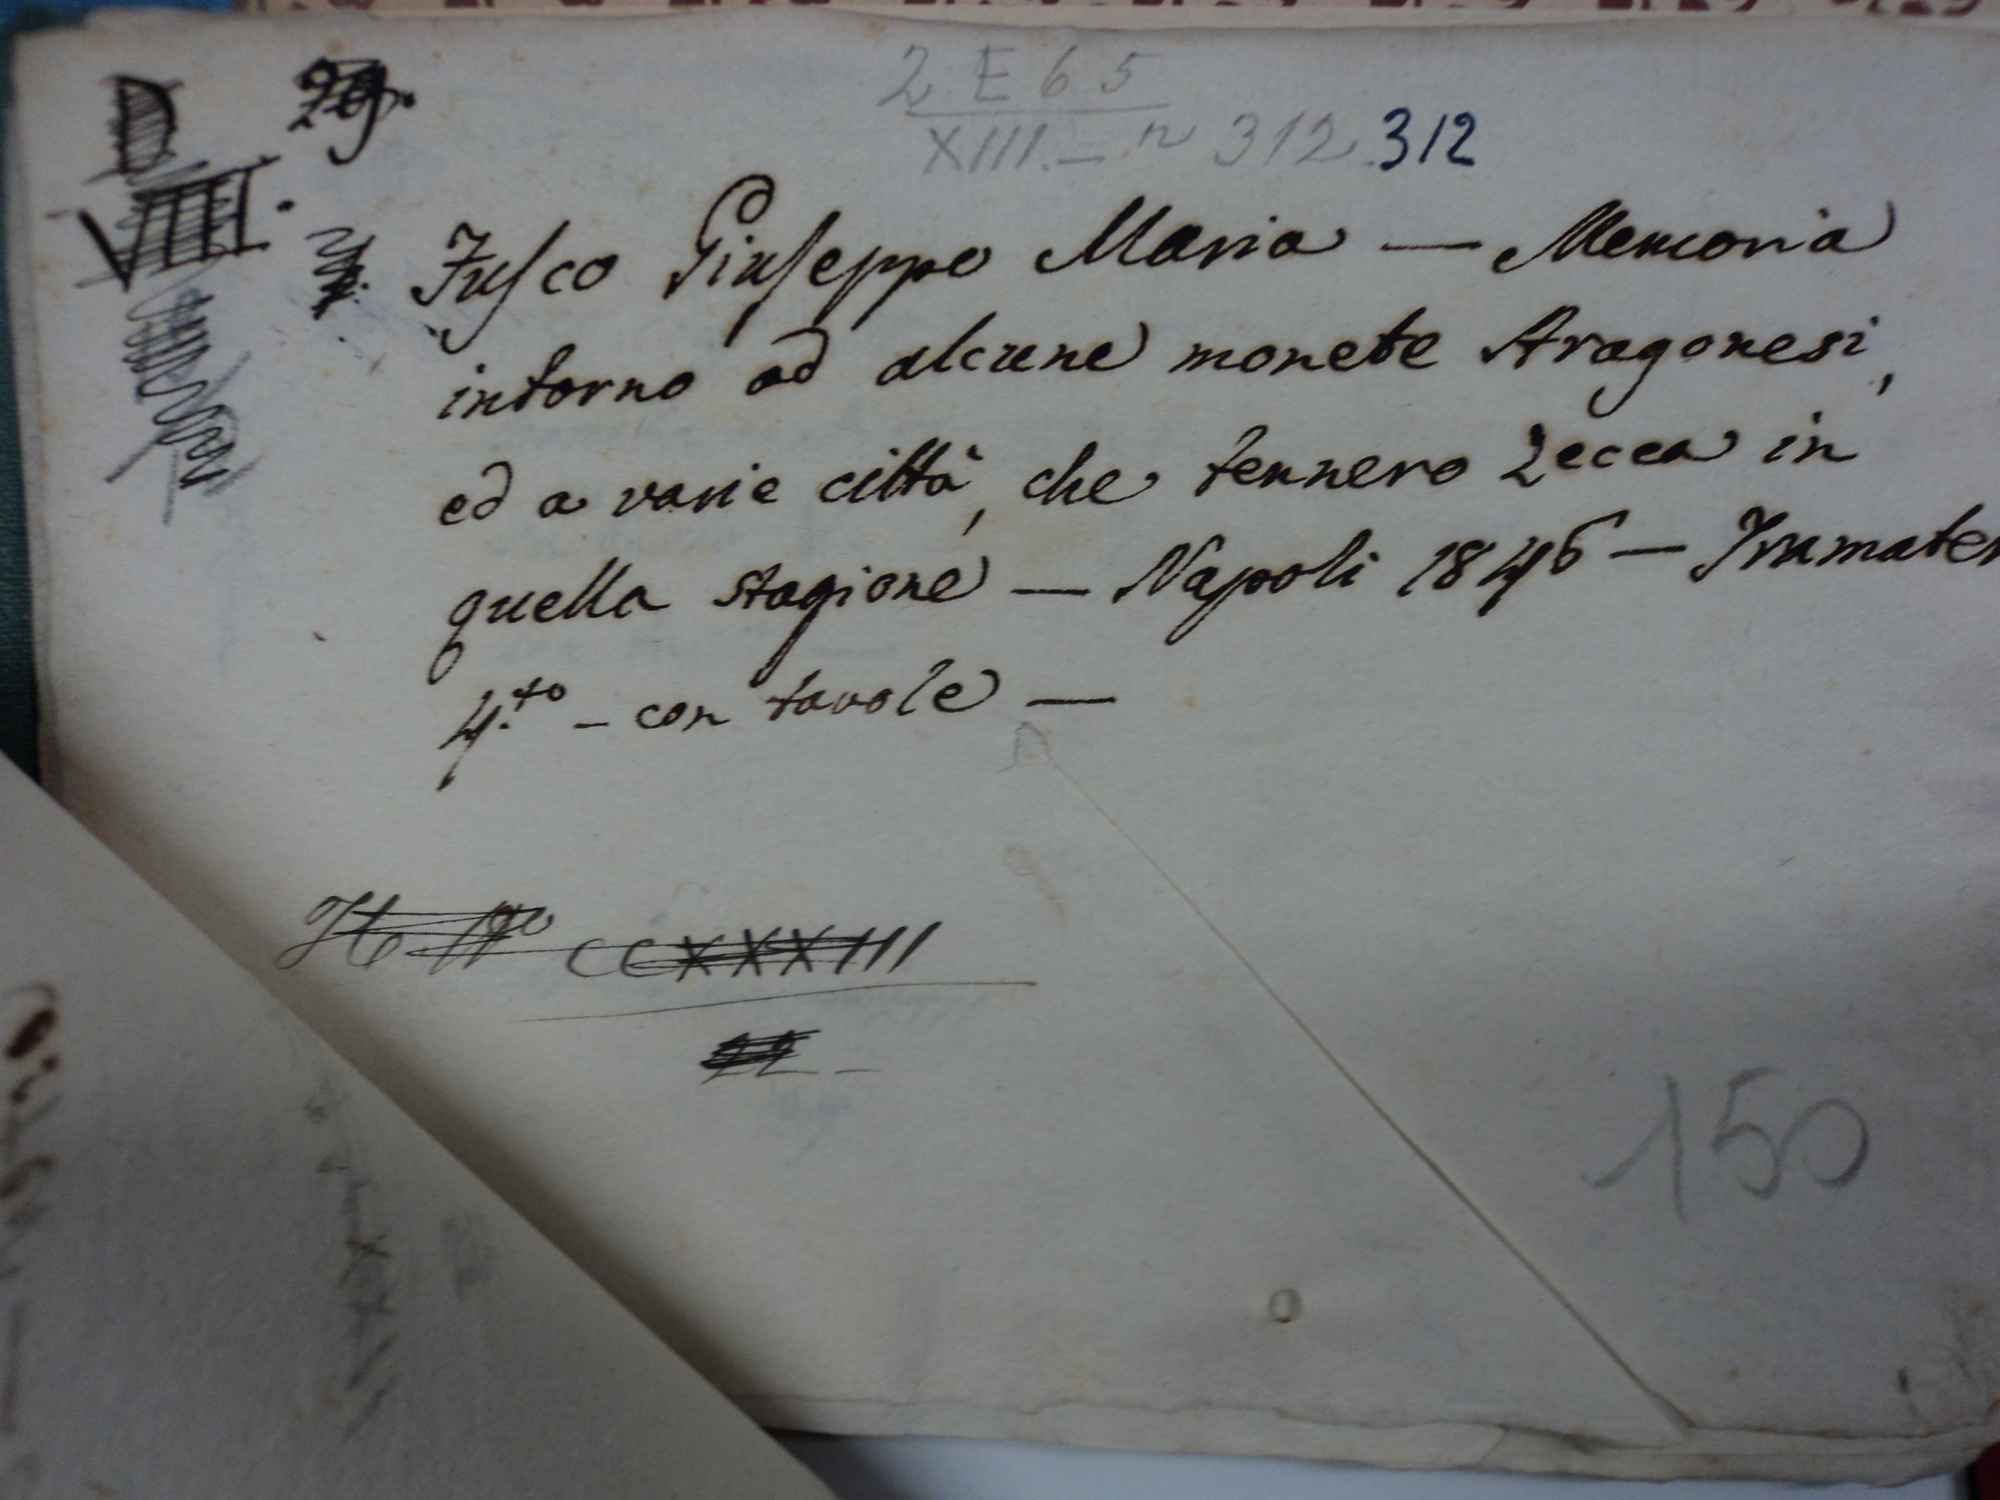 2 E 65
XIII. - n 312. 312
D
VIIII.
Fusco Giuseppe Maria — Memoria
intorno ad alcune monete Aragonesi,
ed a varie città, che tennero Zecca in
quella stagione — Napoli 1846 —
4.to - con tavole —
CCXXXIII
150